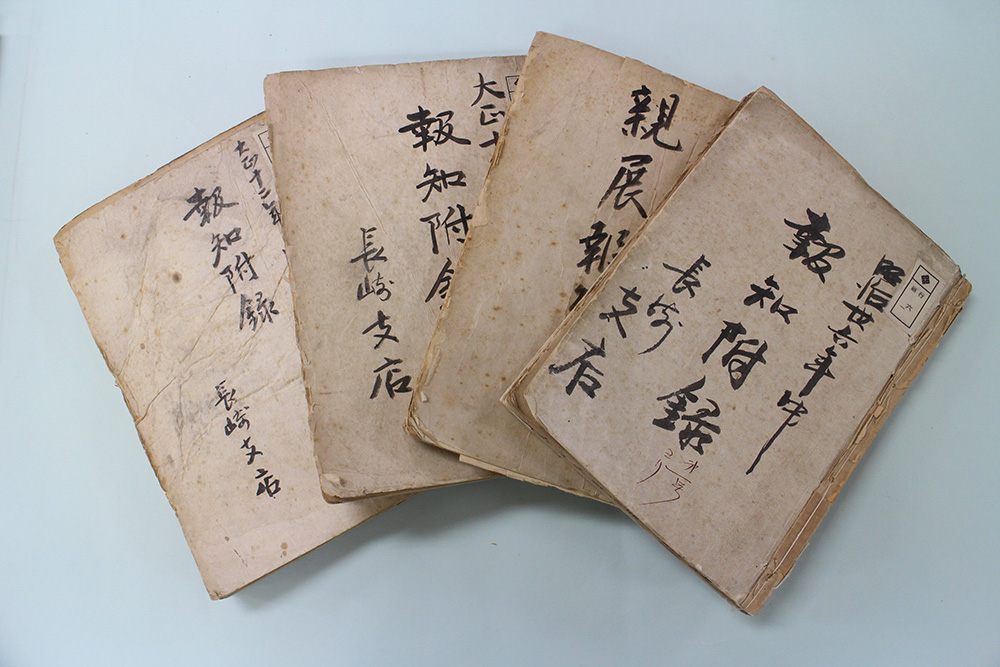 大正十二年
報知附録
長崎支店
大正十
報知附録
長崎支店
親展報
明治廿六年中
報知附録
長崎支店
第一号
ヨリ